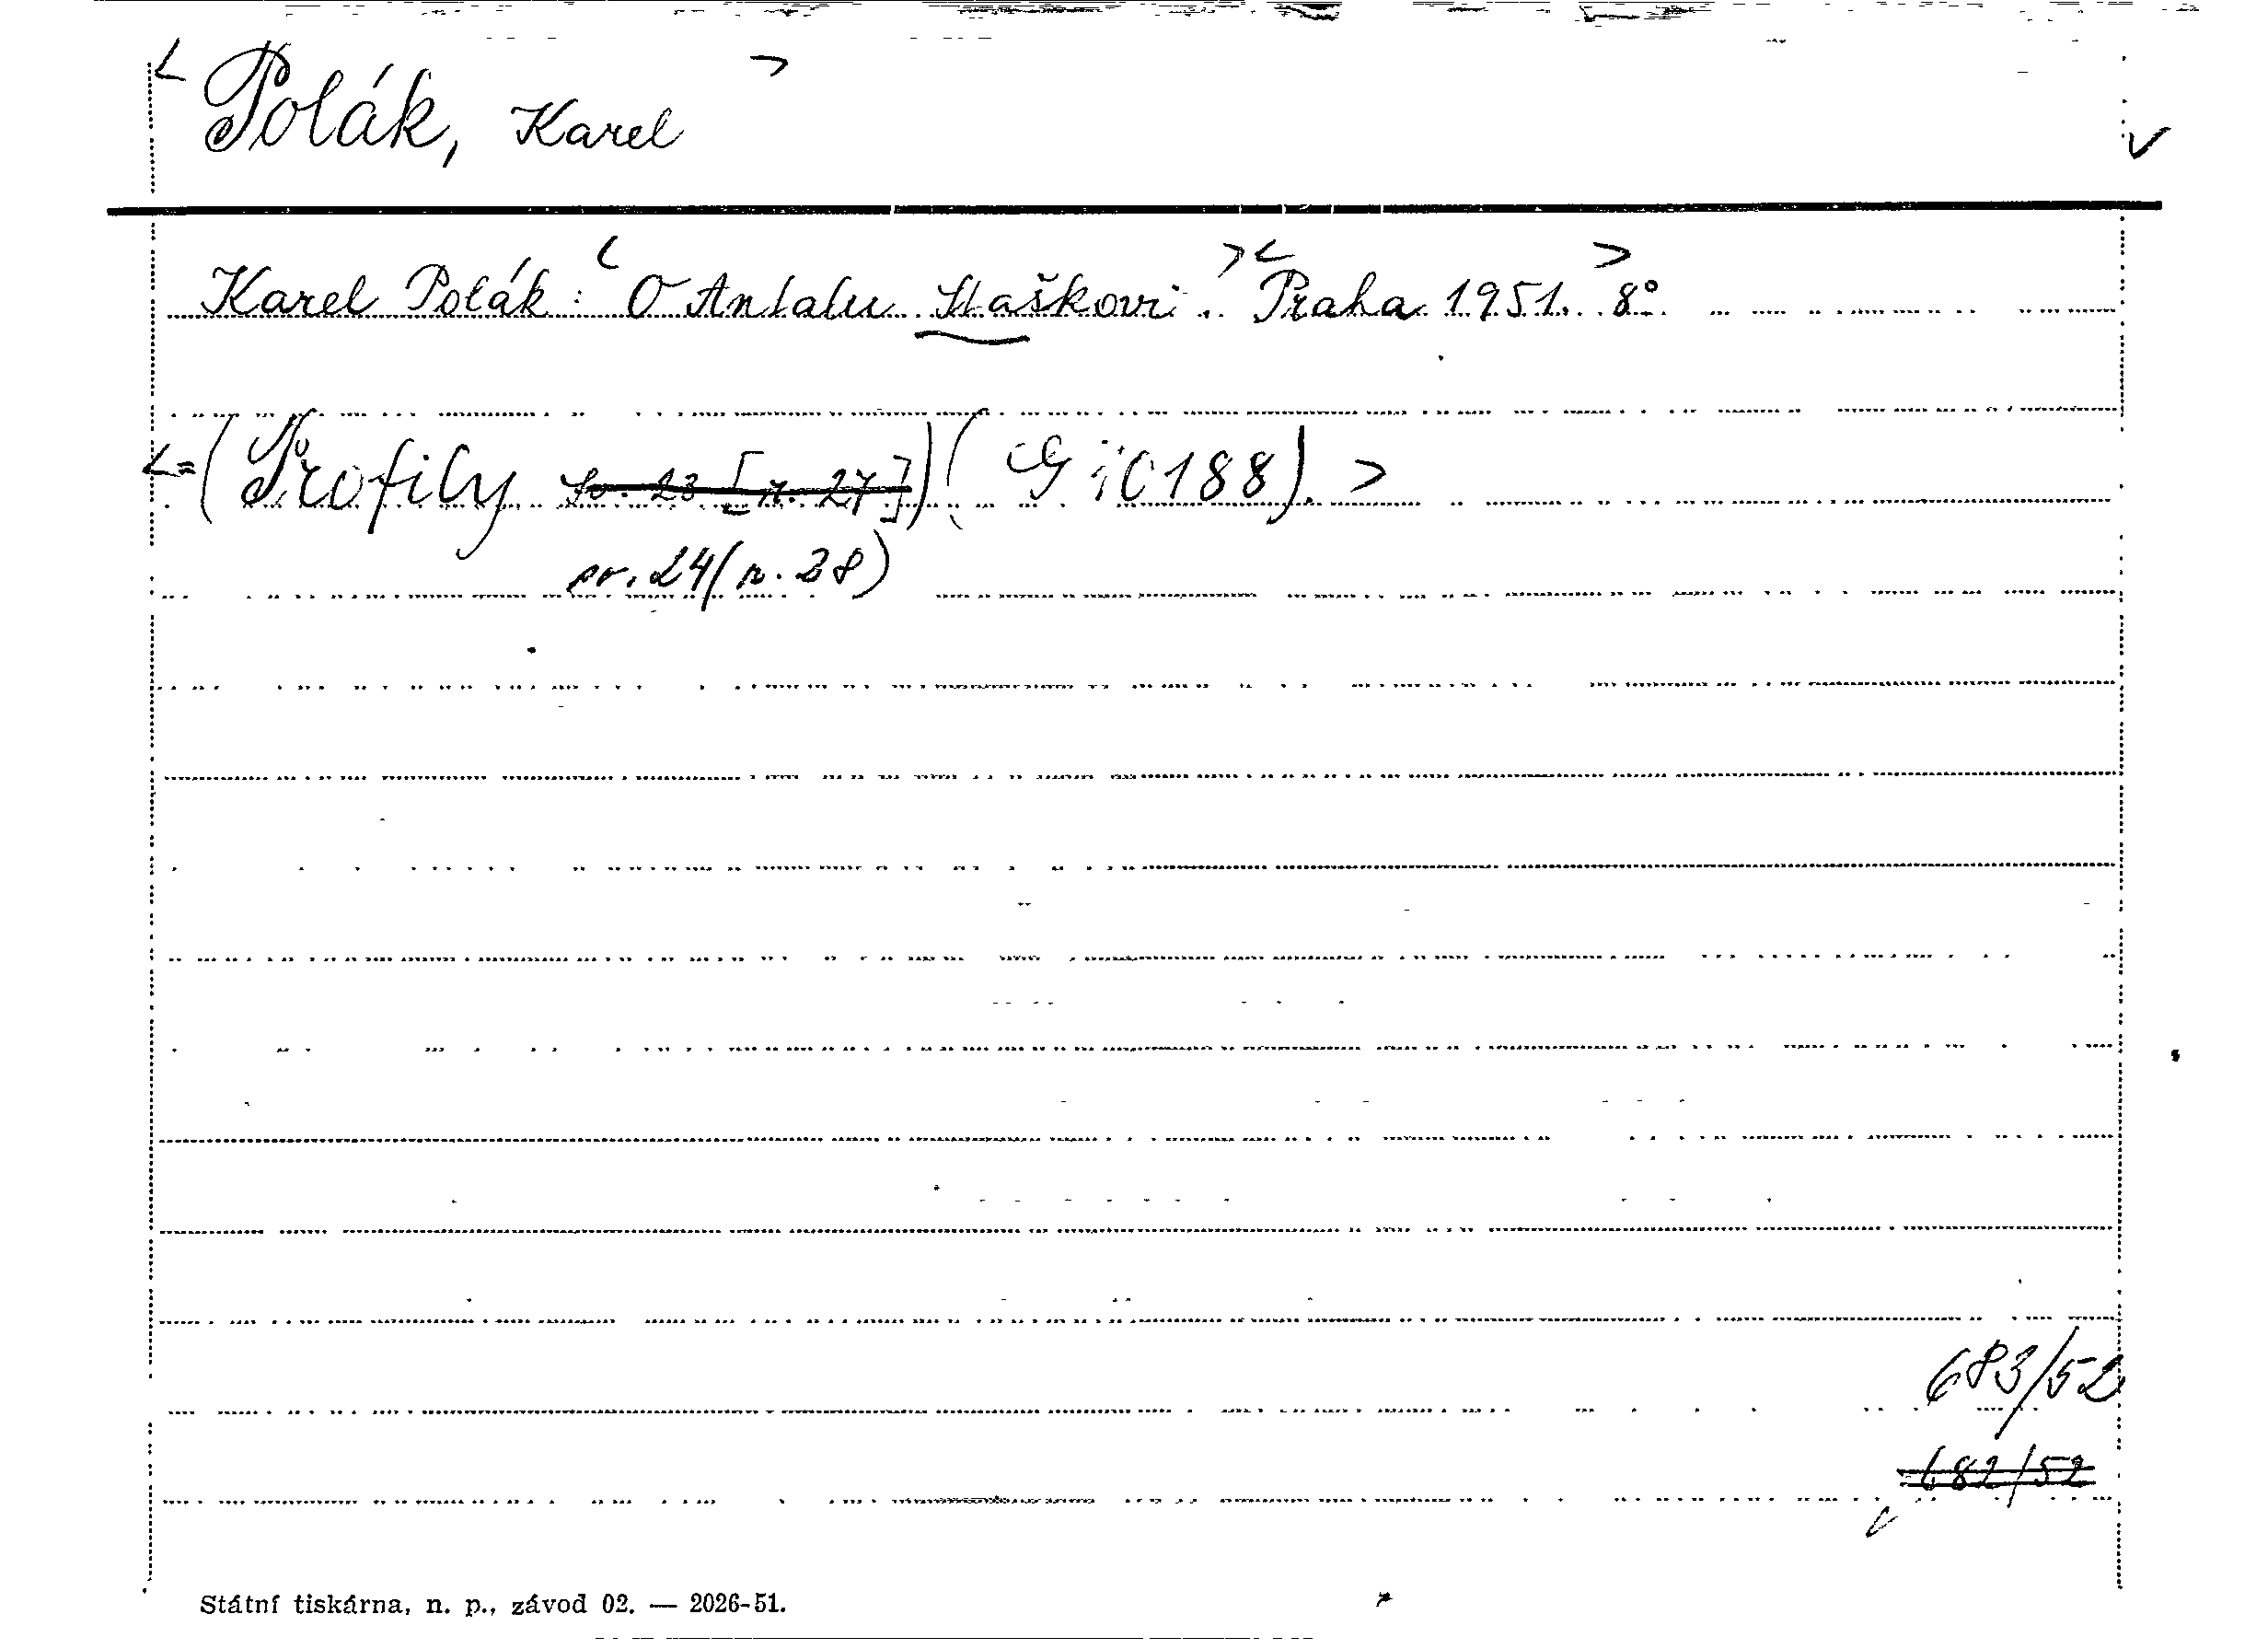 < Polák, Karel >
Karel Polák: < O Antalu Staškovi. > < Praha 1951. > 8°
<= (Profily sv. 23 [n. 27]) (G 10188). >
sv. 24 (n. 28)
683/52
682/52
Státní tiskárna, n. p., závod 02. — 2026-51.